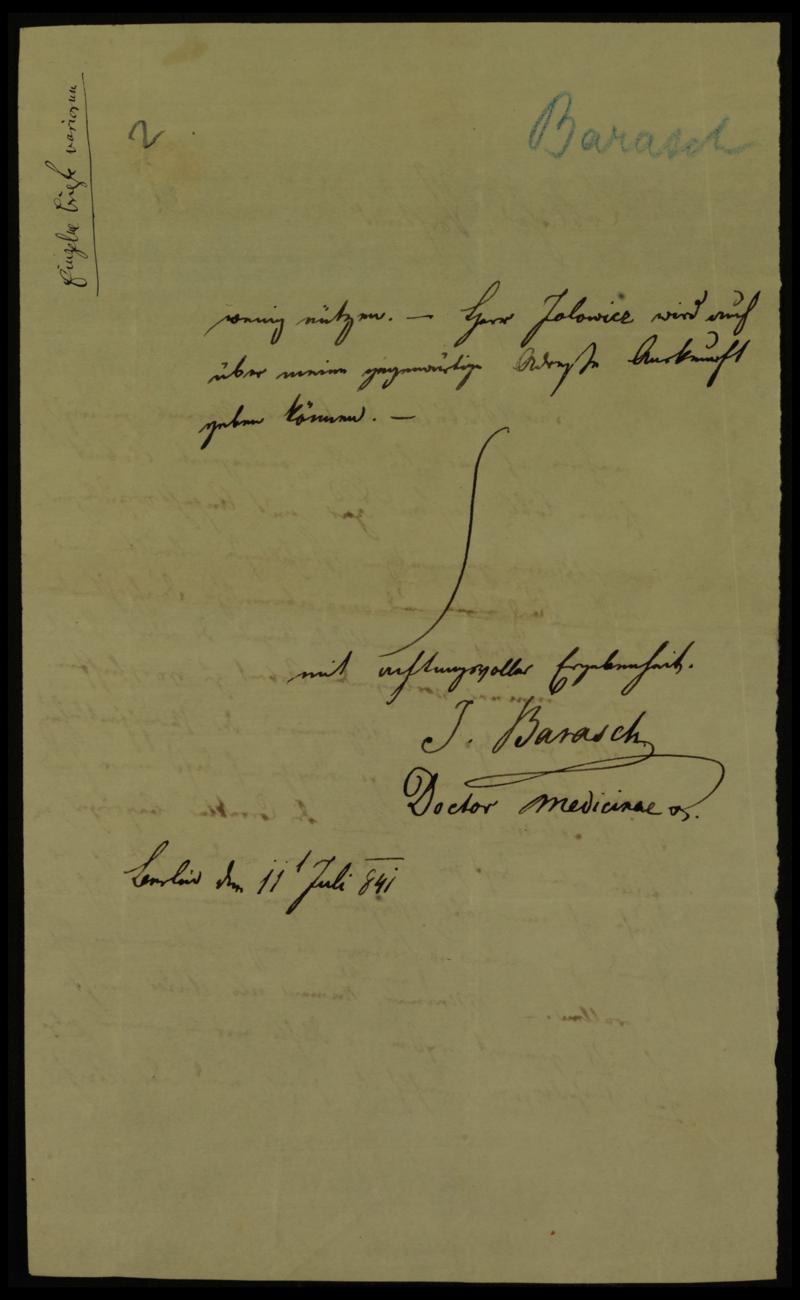 Einzelne Briefe
2
Barasch
wenig nützen. — Herr Jolowicz wird auch
über meine gegenwärtige Adresse Auskunft
geben können. —
mit achtungsvoller Ergebenheit.
J. Barasch
Doctor Medicinae
Berlin den 11 Juli 841